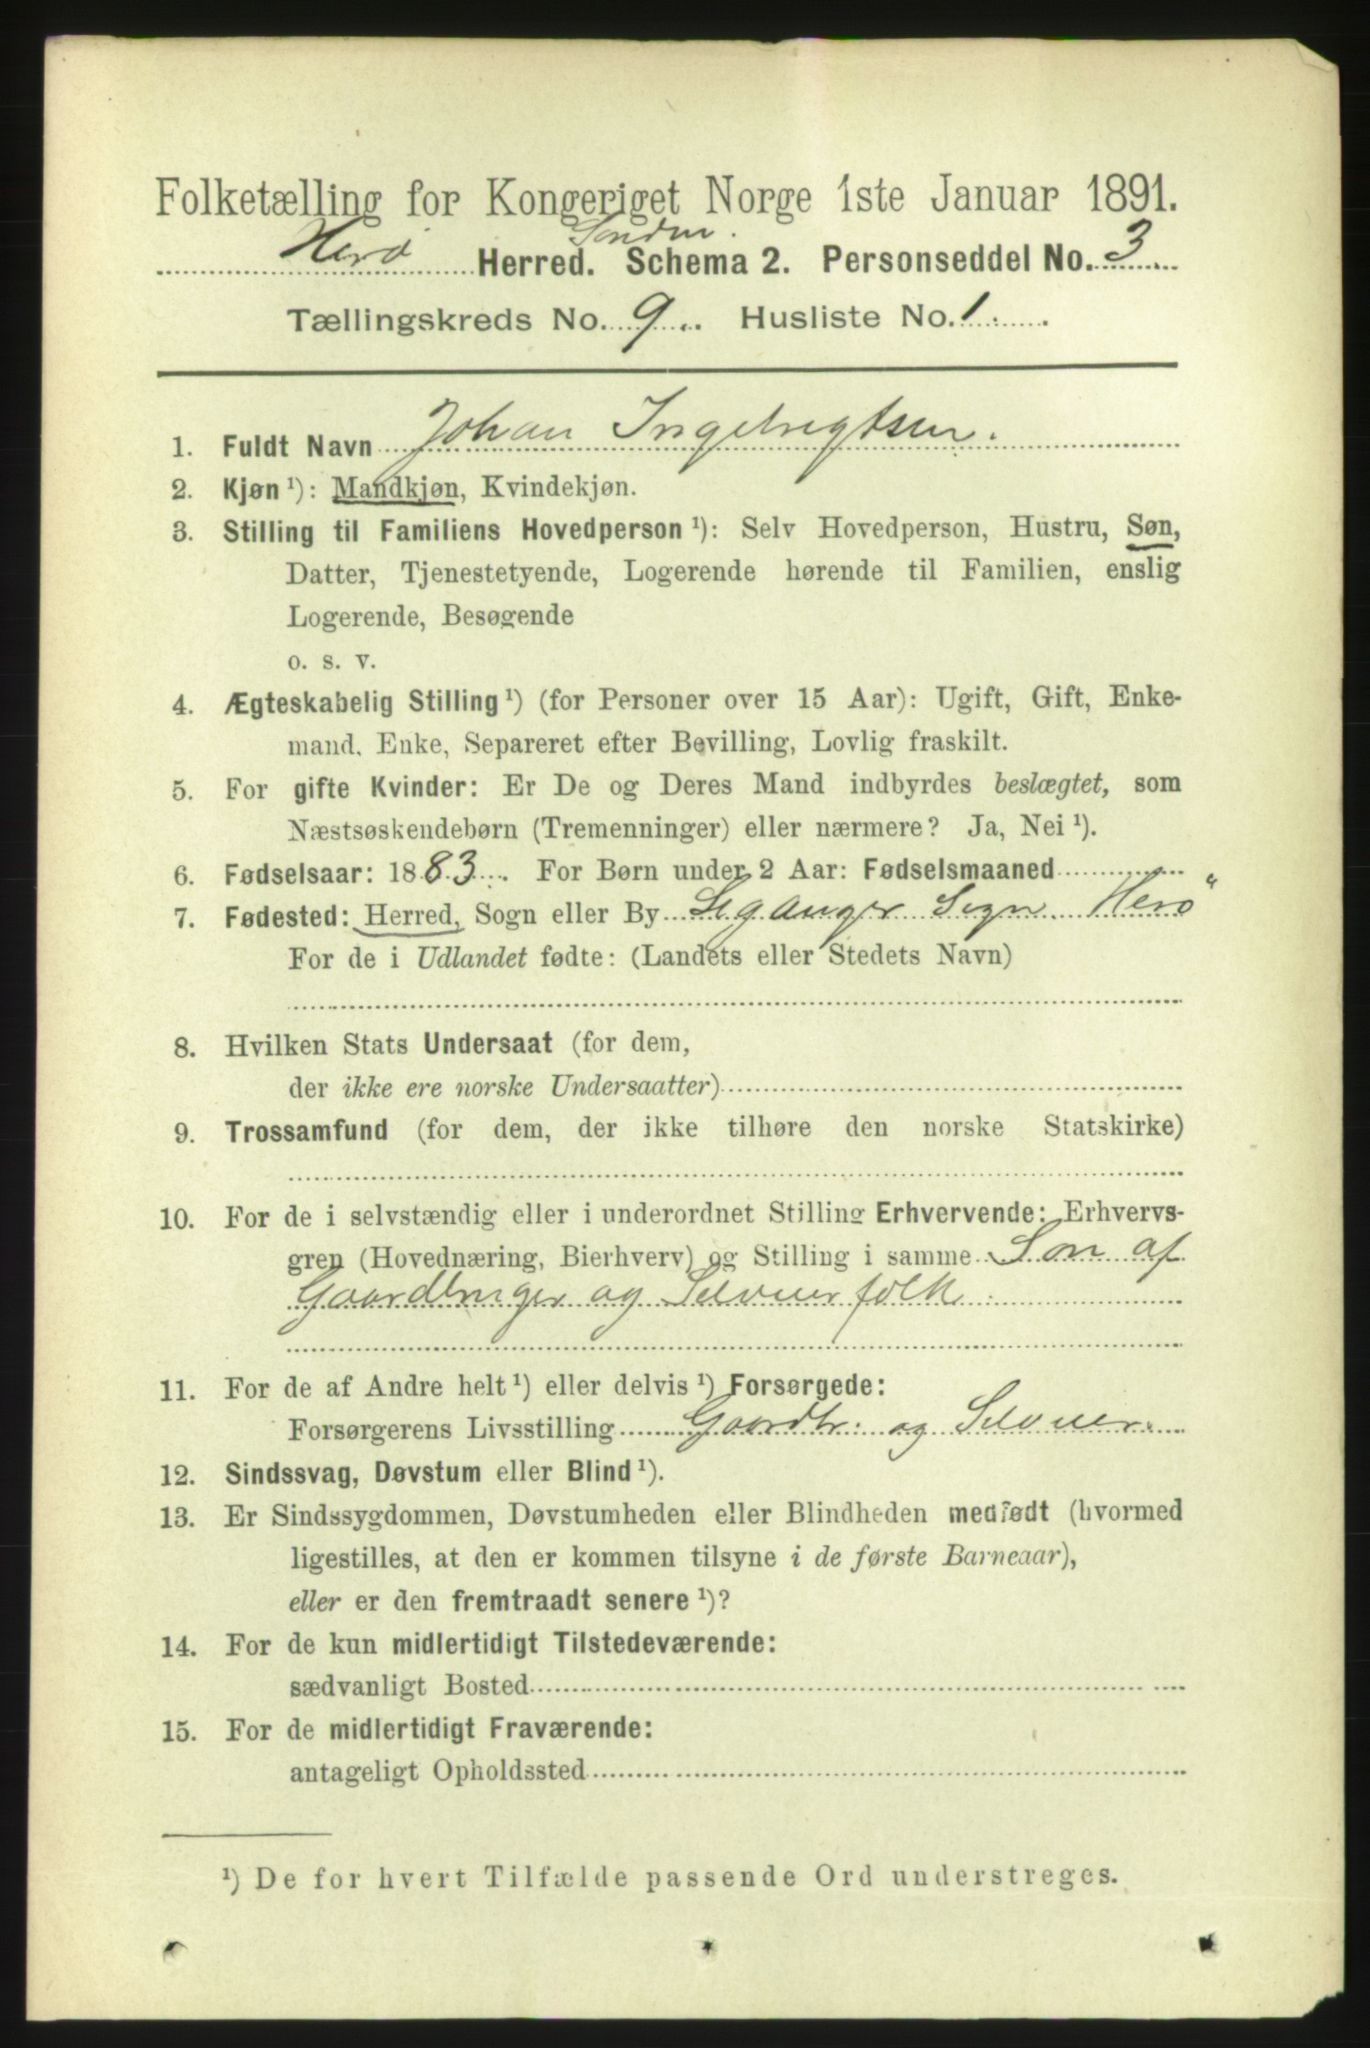 Folketælling for Kongeriget Norge 1ste Januar 1891.
Søndm.
Herø Herred. Schema 2. Personseddel No. 3
Tællingskreds No. 9 Husliste No. 1
1. Fuldt Navn Johan Ingebrigtsen.
2. Kjøn ¹): Mandkjøn, Kvindekjøn.
3. Stilling til Familiens Hovedperson ¹): Selv Hovedperson, Hustru, Søn,
Datter, Tjenestetyende, Logerende hørende til Familien, enslig
Logerende, Besøgende
o. s. v.
4. Ægteskabelig Stilling ¹) (for Personer over 15 Aar): Ugift, Gift, Enke-
mand, Enke, Separeret efter Bevilling, Lovlig fraskilt.
5. For gifte Kvinder: Er De og Deres Mand indbyrdes beslægtet, som
Næstsøskendebørn (Tremenninger) eller nærmere? Ja, Nei ¹).
6. Fødselsaar: 1883. For Børn under 2 Aar: Fødselsmaaned
7. Fødested: Herred, Sogn eller By Leganger Sogn Herø
For de i Udlandet fødte: (Landets eller Stedets Navn)
8. Hvilken Stats Undersaat (for dem,
der ikke ere norske Undersaatter)
9. Trossamfund (for dem, der ikke tilhøre den norske Statskirke)
10. For de i selvstændig eller i underordnet Stilling Erhvervende: Erhvervs-
gren (Hovednæring, Bierhverv) og Stilling i samme Søn af
Gaardbruger og Selveier folk
11. For de af Andre helt ¹) eller delvis ¹) Forsørgede:
Forsørgerens Livsstilling Gaardbr. og Selveier.
12. Sindssvag, Døvstum eller Blind ¹).
13. Er Sindssygdommen, Døvstumheden eller Blindheden medfødt (hvormed
ligestilles, at den er kommen tilsyne i de første Barneaar),
eller er den fremtraadt senere ¹)?
14. For de kun midlertidigt Tilstedeværende:
sædvanligt Bosted
15. For de midlertidigt Fraværende:
antageligt Opholdssted
¹) De for hvert Tilfælde passende Ord understreges.